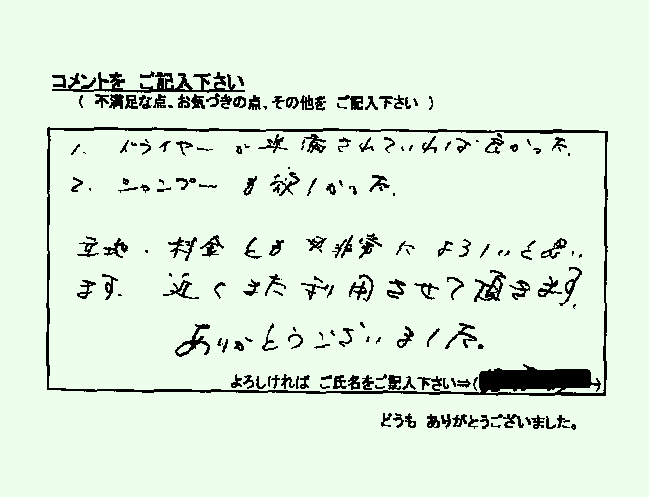 コメントを ご記入下さい
( 不満足な点、お気づきの点、その他を ご記入下さい )
1. ドライヤーが準備されていれば良かった.
2. シャンプーも欲しかった.
立地・料金とも 非常によろしいと思い
ます. 近くまた利用させて頂きます.
ありがとうございました。
よろしければ ご氏名をご記入下さい⇒( )
どうも ありがとうございました。